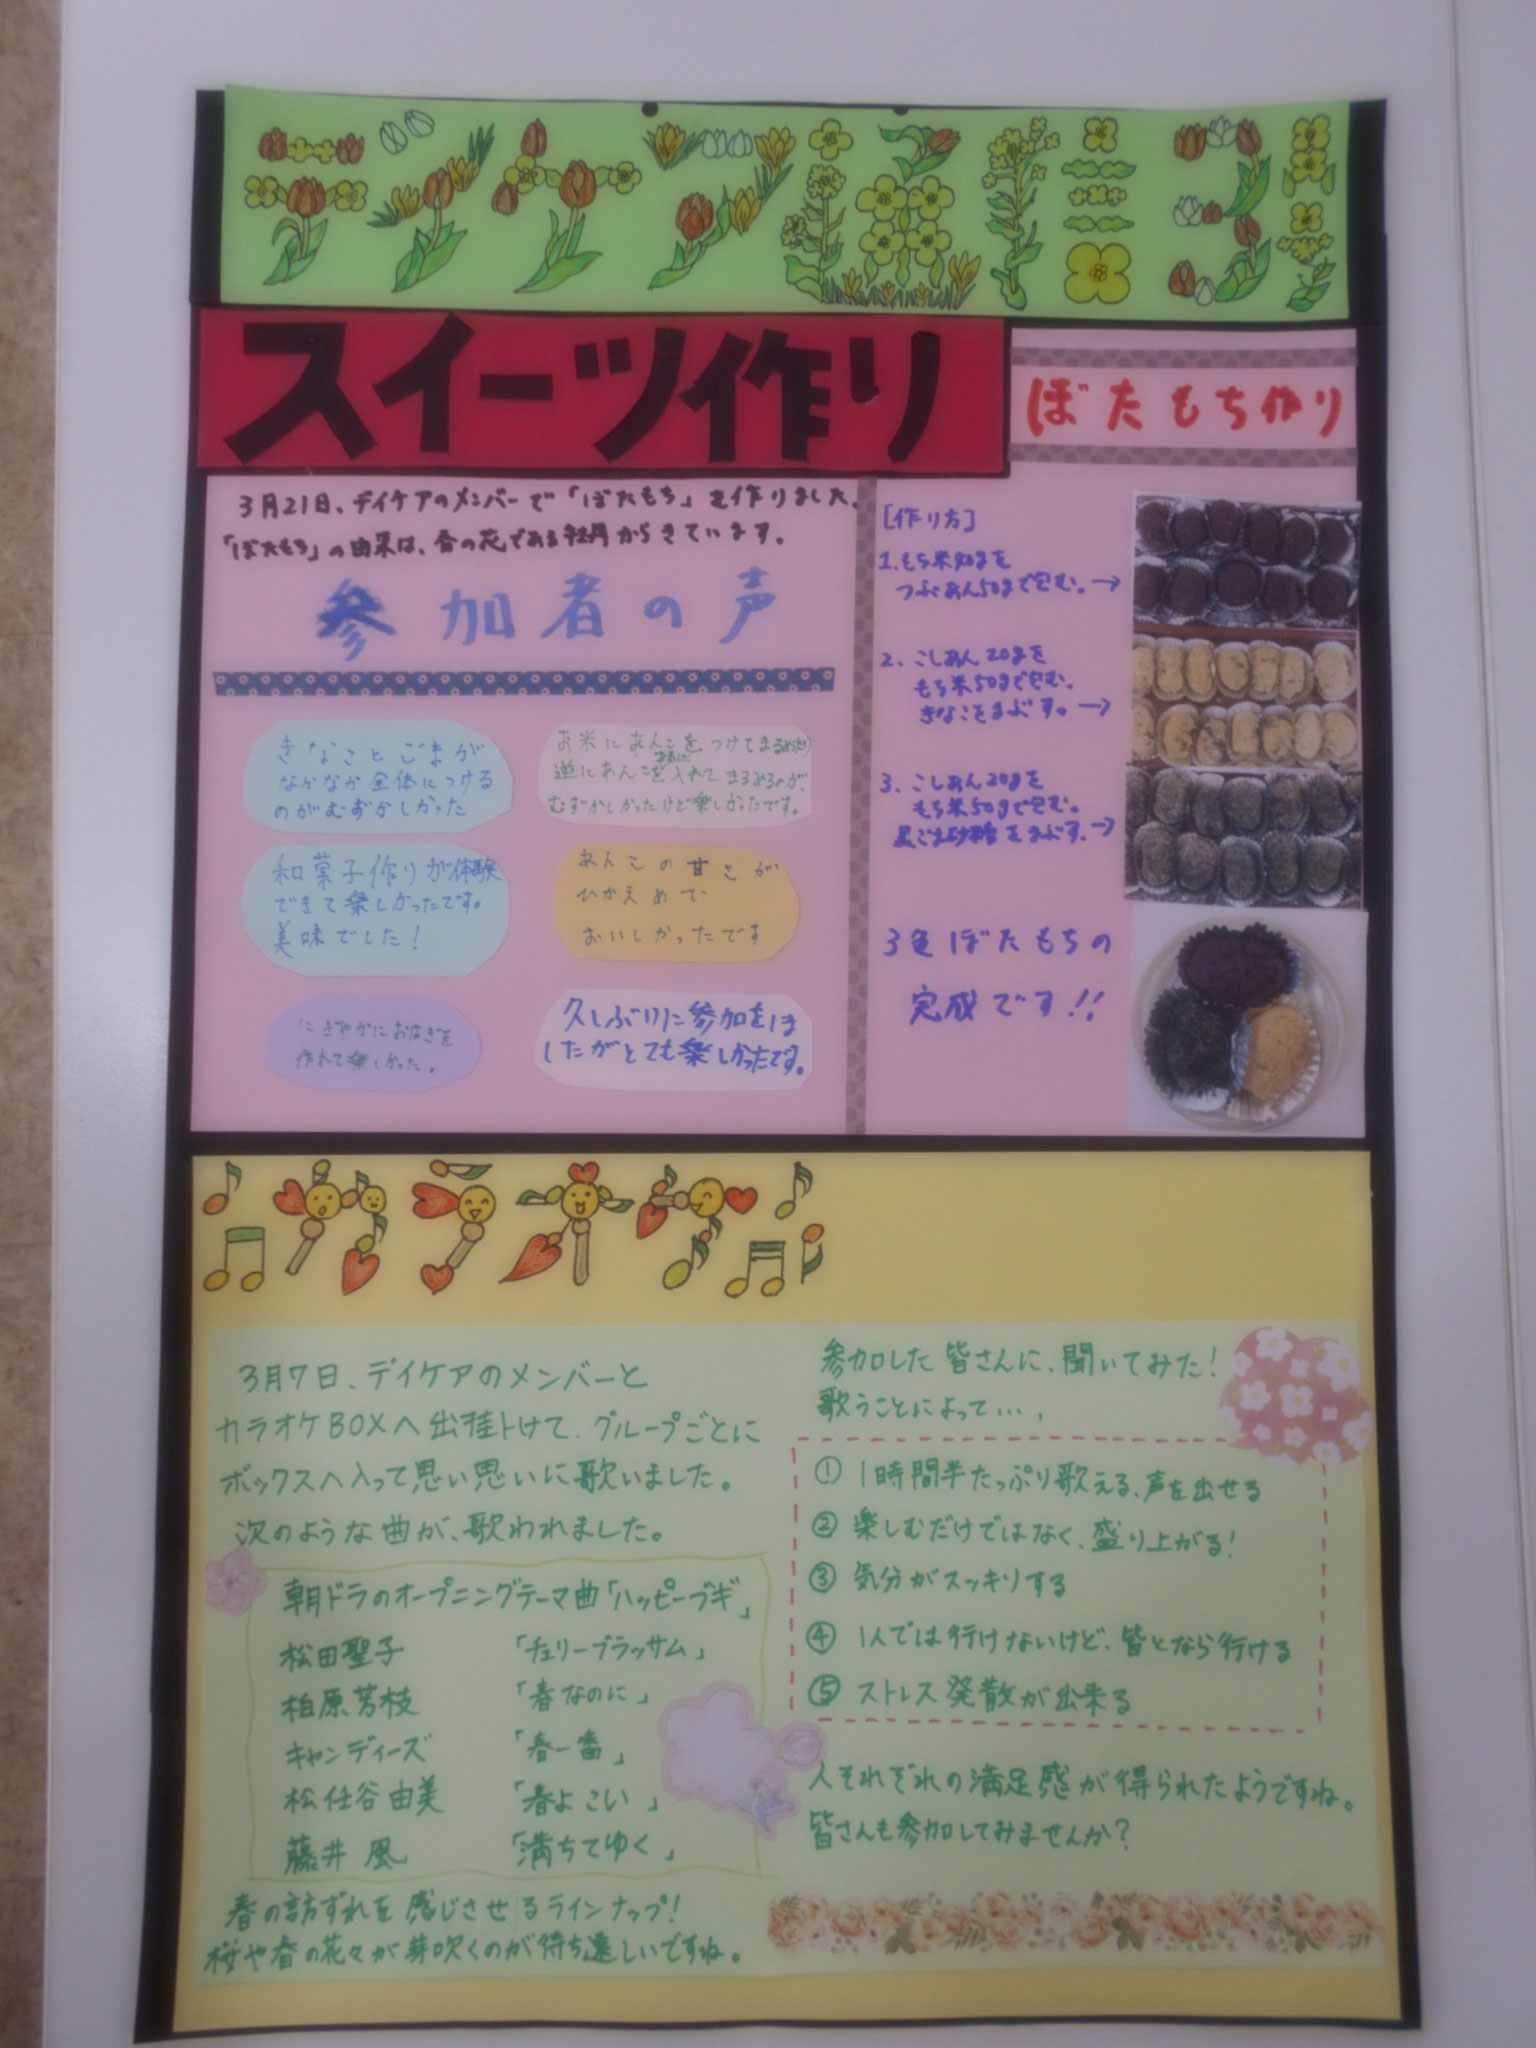 デイケア通信 3月
スイーツ作り
ぼたもち作り
3月21日、デイケアのメンバーで「ぼたもち」を作りました。
「ぼたもち」の由来は、春の花である牡丹からきています。
参加者の声
きなことごまが
なかなか全体につける
のがむずかしかった
お米にあんこをつけてまるめたり
逆にあんこを入れてまるめるのが、
むずかしかったけど楽しかったです。
和菓子作りが体験
できて楽しかったです。
美味でした!
あんこの甘さが
ひかえめで
おいしかったです
にぎやかにおはぎを
作れて楽しかった。
久しぶりに参加をしま
したがとても楽しかったです。
[作り方]
1.もち米を
つぶあん50gで包む。→
2、こしあん20gを
もち米50gで包む。
きなこをまぶす。→
3、こしあん20gを
もち米50gで包む。
黒ごま砂糖をまぶす.→
3色ぼたもちの
完成です!!
カラオケ
3月7日、デイケアのメンバーと
カラオケBOXへ出掛けて、グループごとに
ボックスへ入って思い思いに歌いました。
次のような曲が、歌われました。
朝ドラのオープニングテーマ曲「ハッピーブギ」
松田聖子 「チェリーブラッサム」
柏原芳枝 「春なのに」
キャンディーズ 「春一番」
松任谷由美 「春よこい」
藤井 風 「満ちてゆく」
春の訪ずれを感じさせるラインナップ!
桜や春の花々が芽吹くのが待ち遠しいですね。
参加した皆さんに、聞いてみた!
歌うことによって…、
① 1時間半たっぷり歌える、声を出せる
② 楽しむだけではなく、盛り上がる!
③ 気分がスッキリする
④ 1人では行けないけど、皆となら行ける
⑤ ストレス発散が出来る
人それぞれの満足感が得られたようですね。
皆さんも参加してみませんか?